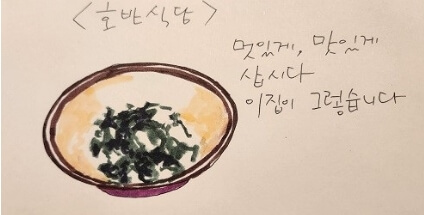 <호반식당>
멋있게, 맛있게
삽시다
이집이 그렇습니다